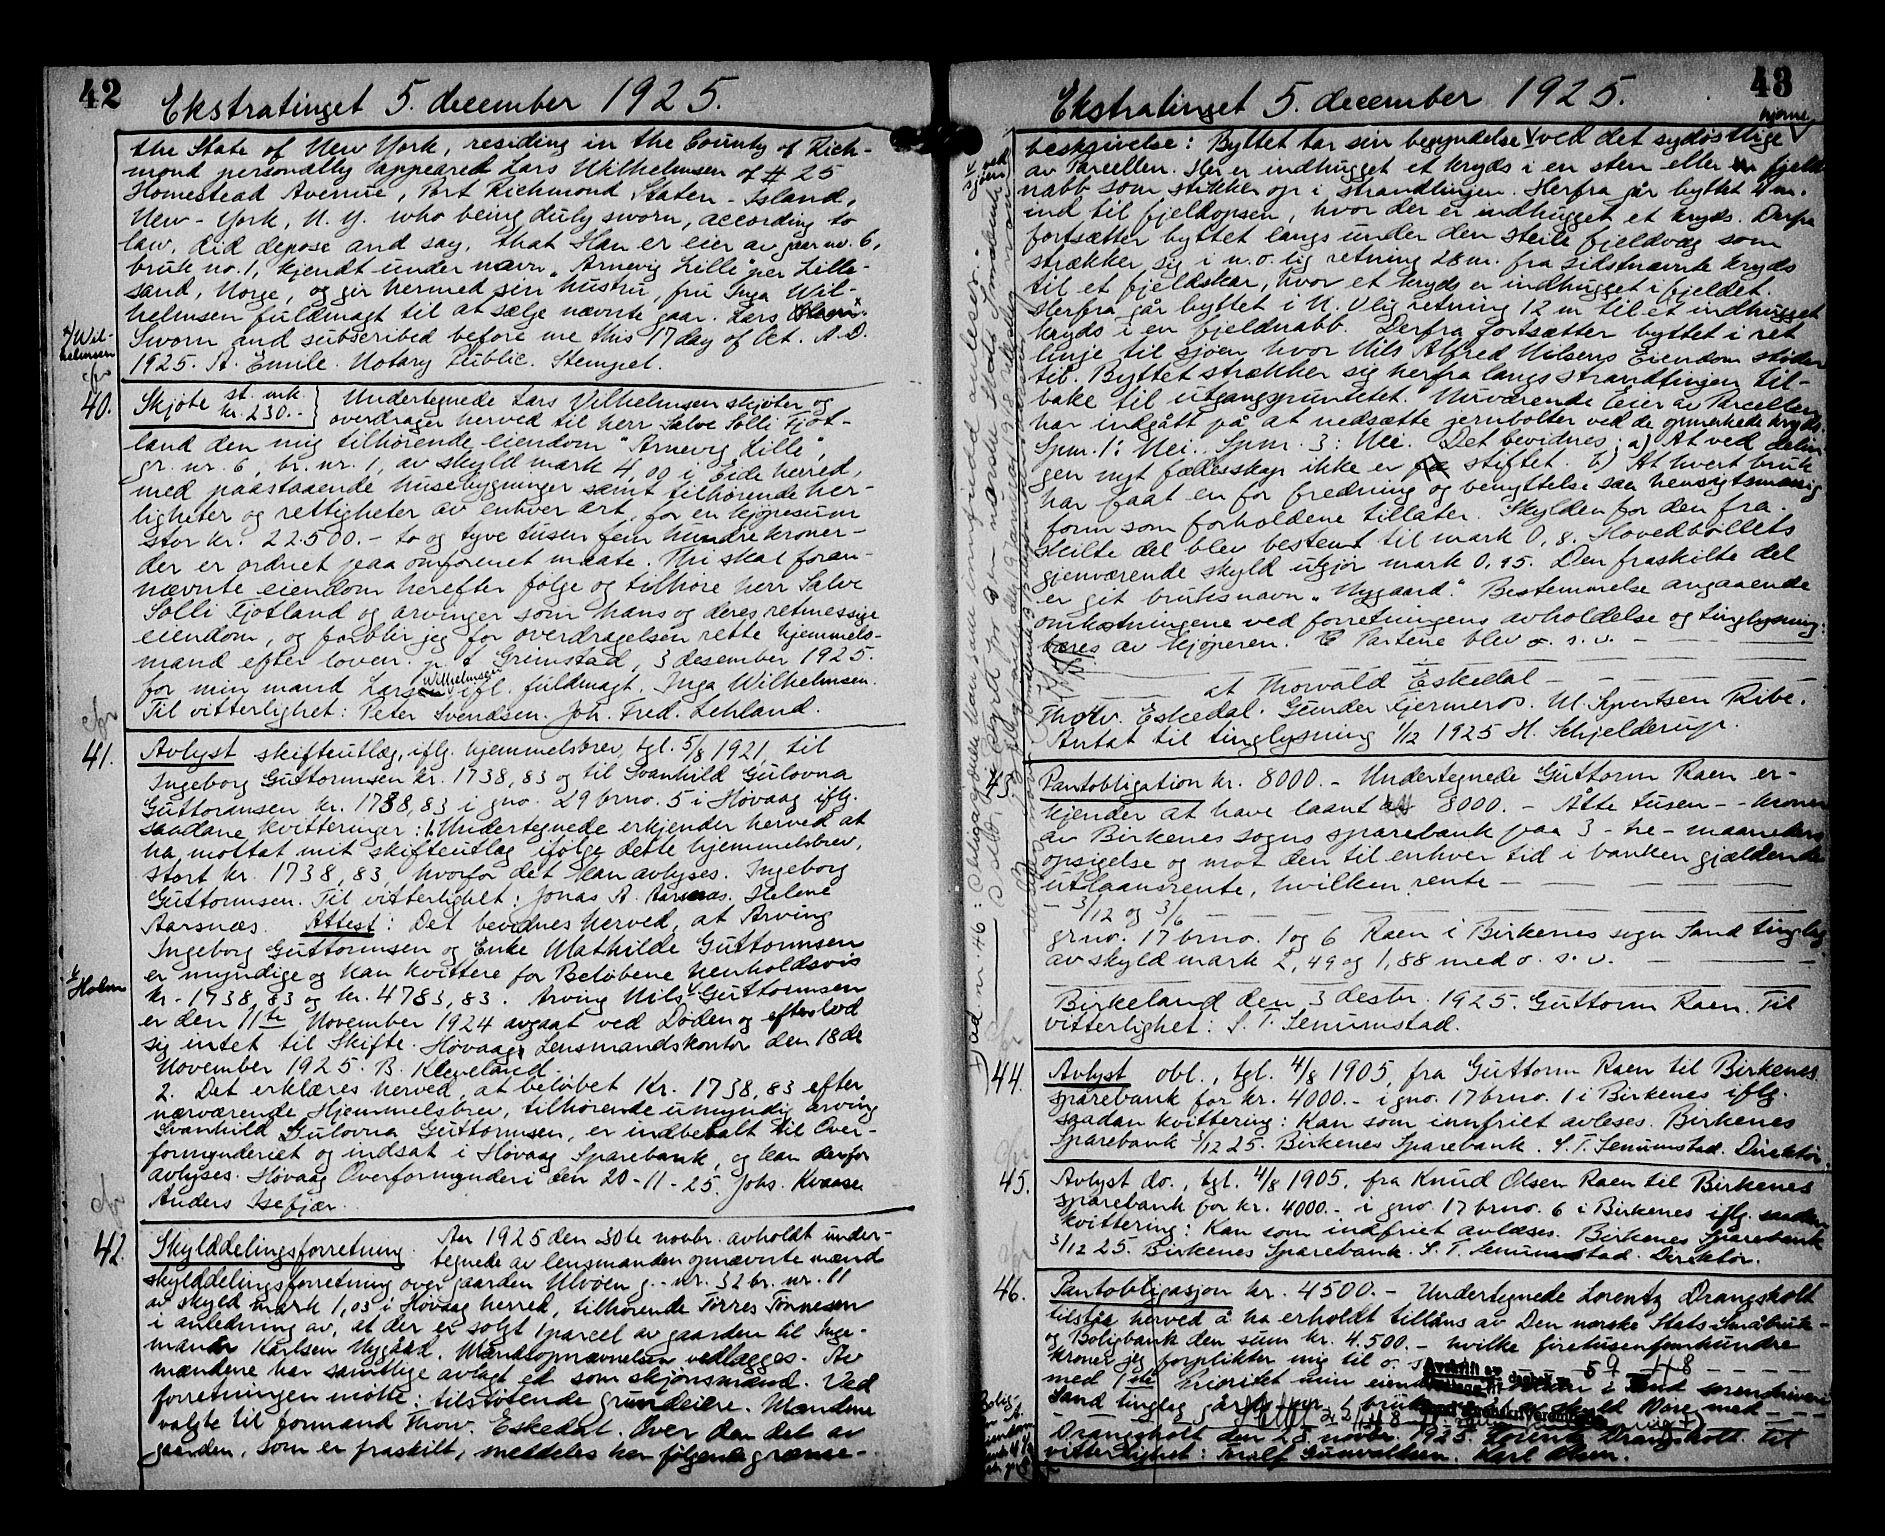 42
Ekstratinget 5. december 1925.
the State of New York, residing in the County of Rich-
mond personally appeared Lars Wilhelmsen of # 25
Homestead Avenue, Port Richmond Staten-Island,
New-York, N.Y. who being duly sworn, according to
law, did depose and say, that Han er eier av gaar nr. 6,
bruk no. 1, kjendt under navn "Arnevig Lille" per Lille-
sand, Norge, og gir hermed sin hustru, fru Inga Wil-
helmsen fuldmagt til at sælge nævnte gaar. Lars
x/ Wil-
helmsen
Sworn and subscribed before me this 17 day of Oct. A.D.
1925. A. Emile. Notary Public. Stempel.
40.
Skjøte st. mk. kr. 230.-
Undertegnede Lars Vilhelmsen skjøter og
overdrager herved til herr Salve Solli Fjot-
land den mig tilhørende eiendom "Arnevig Lille",
gr. nr. 6, br. nr. 1, av skyld mark 4,00 i Eide herred,
med paastaaende husebygninger samt tilhørende her-
ligheter og rettigheter av enhver art, for en kjøpesum
stor kr. 22500.- to og tyve tusen fem hundre kroner-
der er ordnet paa omforenet maate. Thi skal foran-
nævnte eiendom herefter følge og tilhøre herr Salve
Solli Fjotland og arvinger som hans og deres retmessige
eiendom, og forblir jeg for overdragelsen rette hjemmels-
mand efter loven. p. t. Grimstad, 3 desember 1925.
for min mand Lars Wilhjelmsen ifl. fuldmagt. Inga Wilhelmsen.
Til vitterlighet: Peter Svendsen. Joh. Fred. Lehland.
41.
Avlyst skifteutlæg, iflg. hjemmelsbrev, tgl. 5/8 1921, til
Ingeborg Guttormsen kr. 1738,83 og til Svanhild Gulovna
Guttormsen kr. 1738,83 i gno. 29 brno. 5 i Høvaag iflg.
saadane kvitteringer: 1. Undertegnede erkjender herved at
ha mottat mit skifteutlæg ifølge dette hjemmelsbrev,
stort kr. 1738,83, hvorfor det kan avlyses. Ingeborg
Guttormsen. Til vitterlighet: Jonas A. Aarsnæs. Helene
Aarsnæs. Attest: Det bevidnes herved, at Arving
Ingeborg Guttormsen og Enke Mathilde Guttormsen
er myndige og kan kvittere for Beløbene henholdsvis
kr. 1738,83 og kr. 4783,83. Arving Nils Guttormsen
Holm
er den 11te November 1924 avgaat ved Døden og efterlod
sig intet til Skifte. Høvaag Lensmandskontor den 18de
November 1925. B. Kleveland.
2. Det erklæres herved, at beløbet Kr. 1738,83 efter
nærværende Hjemmelsbrev, tilhørende umyndig arving
Svanhild Gulovna Guttormsen, er indbetalt til Over-
formynderiet og indsat i Høvaag Sparebank, og kan derfor
avlyses. Høvaag Overformynderi den 20-11-25. Johs. Kvaase
Anders Isefjær.
42.
Skylddelingsforretning. Aar 1925 den 30te novbr. avholdt under-
tegnede av lensmanden opnævnte mænd
skylddelingsforretning over gaarden Ulvøen g.-nr. 32 br. nr. 11
av skyld mark 1,03 i Høvaag herred, tilhørende Tørres Tønnesen
i anledning av, at der er solgt 1 parcel av gaarden til Inge-
Karlsen Nygård. Mandsopnævnelsen vedlægges. Av
mændene har samtlige avlagt ed som skjønsmænd. Ved
forretningen møtte: tilstøtende grundeiere. Mændene
valgte til formand Thow. Eskedal. Over den det av
gaarden, som er fraskilt, meddeles her følgende grænse-
43
Ekstratinget 5. december 1925.
beskrivelse: Byttet tar sin begyndelse ved det sydøstlige hjørne
av Parcellen. Her er indhugget et kryds i en sten eller fjeld-
nabb som stikker op i strandlingen. Herfra går byttet 4 m.
ind til fjeldopsen, hvor der er indhugget et kryds. Derfra
fortsætter byttet langs under den steile fjeldvæg som
strækker sig i n.ø. lig retning 28 m. fra sidstnævnte kryds
til et fjeldskar, hvor et kryds er indhugget i fjeldet.
Herfra går byttet i N.V.lig retning 12 m til et indhugget
kryds i en fjeldnabb. Derfra fortsætter byttet i ret
linje til sjøen hvor Nils Alfred Nilsens Eiendom støder
til. Byttet strækker sig herfra langs strandlingen til-
bake til utgangspunktet. Nuværende Eier av Parcellen
har indgått på at nedsætte jernbolter ved de opmerkede kryds.
Spm. 1: Nei. Spm. 3: Nei. Det bevidnes: a) At ved delin-
gen nyt fællesskap ikke er stiftet. b) At hvert bruk
har faat en for fredning og benyttelse saa hensigtsmæssig
form som forholdene tillater. Skylden for den fra-
skilte del blev bestemt til mark 0,8. Hovedbøllets
gjenværende skyld utgjør mark 0,95. Den fraskilte del
er git bruksnavn "Nygaard." Bestemmelse angaaende
omkostningene ved forretningens avholdelse og tinglysning:
bæres av kjøperen. Partene blev o. s. v. - - -
at Thorvald Eskedal - - -
Thov. Eskedal. Gunder Fjermeros. M. Syvertsen Ribe.
Antat til tinglysning 1/12 1925 H. Schjelderup.
43.
Pantobligation kr. 8000.- Undertegnede Guttorm Raen er-
kjender at have laant 8000.- Åtte tusen - - kroner
av Birkenes sogns sparebank paa 3 - tre - maaneders
opsigelse og mot den til enhver tid i banken gjældende
utlaansrente, hvilken rente - - -
- 3/12 og 3/6 - - -
grno. 17 brno. 1 og 6 Raen i Birkenes sogn Sand tinglag
av skyld mark 2,49 og 1,88 med o. s. v. - - -
Birkeland den 3 desbr. 1925. Guttorm Raen. Til
vitterlighet: S. T. Senumstad.
44.
Avlyst obl., tgl. 4/8 1905, fra Guttorm Raen til Birkenes
sparebank for kr. 4000.- i gno. 17 brno. 1 i Birkenes iflg.
saadan kvittering: Kan som innfriet avleses. Birkenes
Sparebank 3/12 25. Birkenes Sparebank. S. T. Senumstad. Direktør.
45.
Avlyst do., tgl. 4/8 1905, fra Knud Olsen Raen til Birkenes
sparebank for kr. 4000.- i gno 17 brno. 6 i Birkenes iflg. saadan
kvittering: Kan som indfriet avlæses. Birkenes Sparebank
3/12 25. Birkenes Sparebank. S. T. Senumstad. Direktør.
46.
Pantobligasjon kr. 4500.- Undertegnede Lorentz Drangsholt
tilstår herved å ha erholdt tillåns av Den norske Stats Småbruk-
og Boligbank den sum kr. 4.500.- hvilke firetusenfemhundre
kroner jeg forplikter mig til o. s.
59 48
med 1ste Prioritet min eiendom
Sand tinglag
Drangsholt den 28 novbr. 1925. Lorentz Drangsholt. Til
vitterlighet: Gunvaldsen. Karl Olsen.